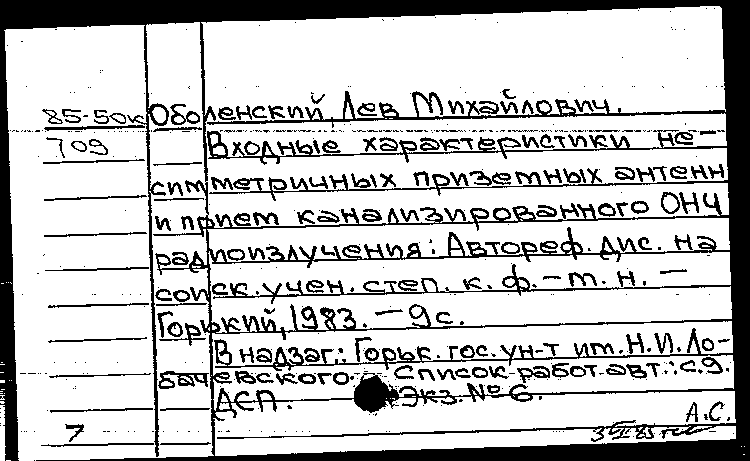 85-50к Оболенский, Лев Михайлович.
709 Входные характеристики не-
симметричных приземных антенн
и прием канализированного ОНЧ
радиоизлучения: Автореф. дис. на
соиск. учен. степ. к. ф.-м. н. —
Горький, 1983. — 9 с.
В надзаг.: Горьк. гос. ун-т им. Н.И. Ло-
бачевского. Список работ авт.: с. 9.
ДСП. Экз. № 6.
А.С.
7